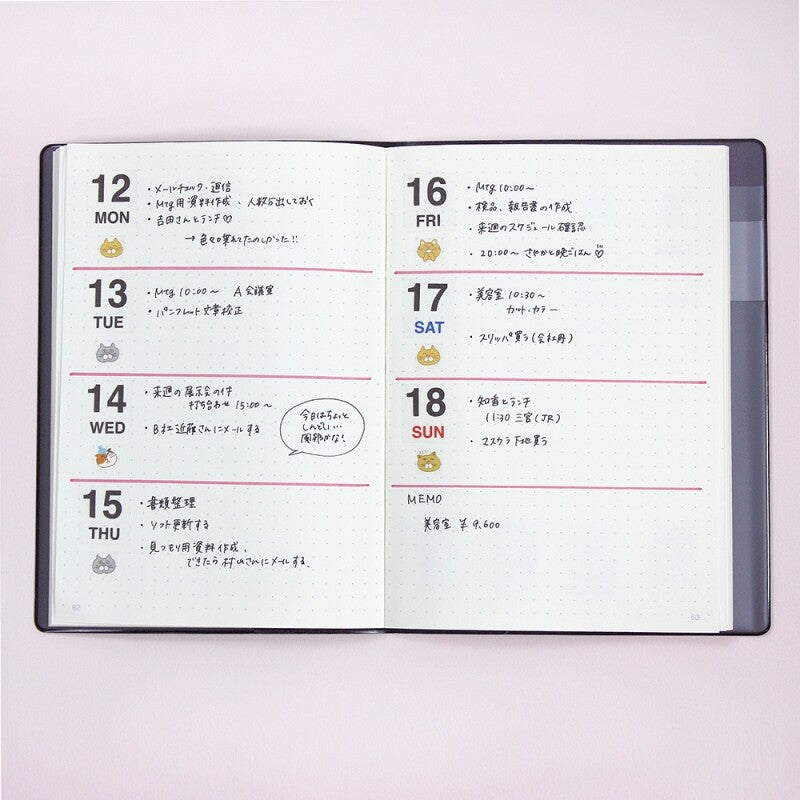 12
MON
・メールチェック・返信
・Mtg用資料作成、人数分出しておく
・吉田さんとランチ♡
→色々喋れてたのしかった!!
13
TUE
・Mtg 10:00〜 A会議室
・パンフレット文章校正
14
WED
・来週の展示会の件
打ち合わせ 15:00〜
・B社近藤さんにメールする
今日はちょっと
しんどい…
風邪かな!
15
THU
・書類整理
・ソフト更新する
・見つもり用資料作成、
できたら村山さんにメールする。
62
16
FRI
・Mtg 10:00〜
・検品、報告書の作成
・来週のスケジュール確認
・20:00〜 さやかと晩ごはん♡
17
SAT
・美容室 10:30〜
カット・カラー
・スリッパ買う(会社用)
18
SUN
・知香とランチ
11:30 三宮(JR)
・マスカラ下地買う
MEMO
美容室 ¥9,600
63